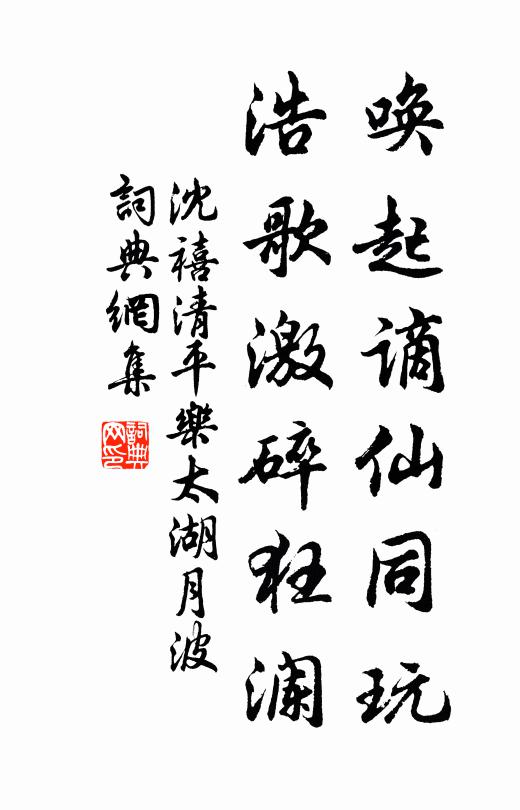 唤起谪仙同玩
浩歌激碎狂澜
沈禧清平樂太湖月波
詞典網集
詞典网印